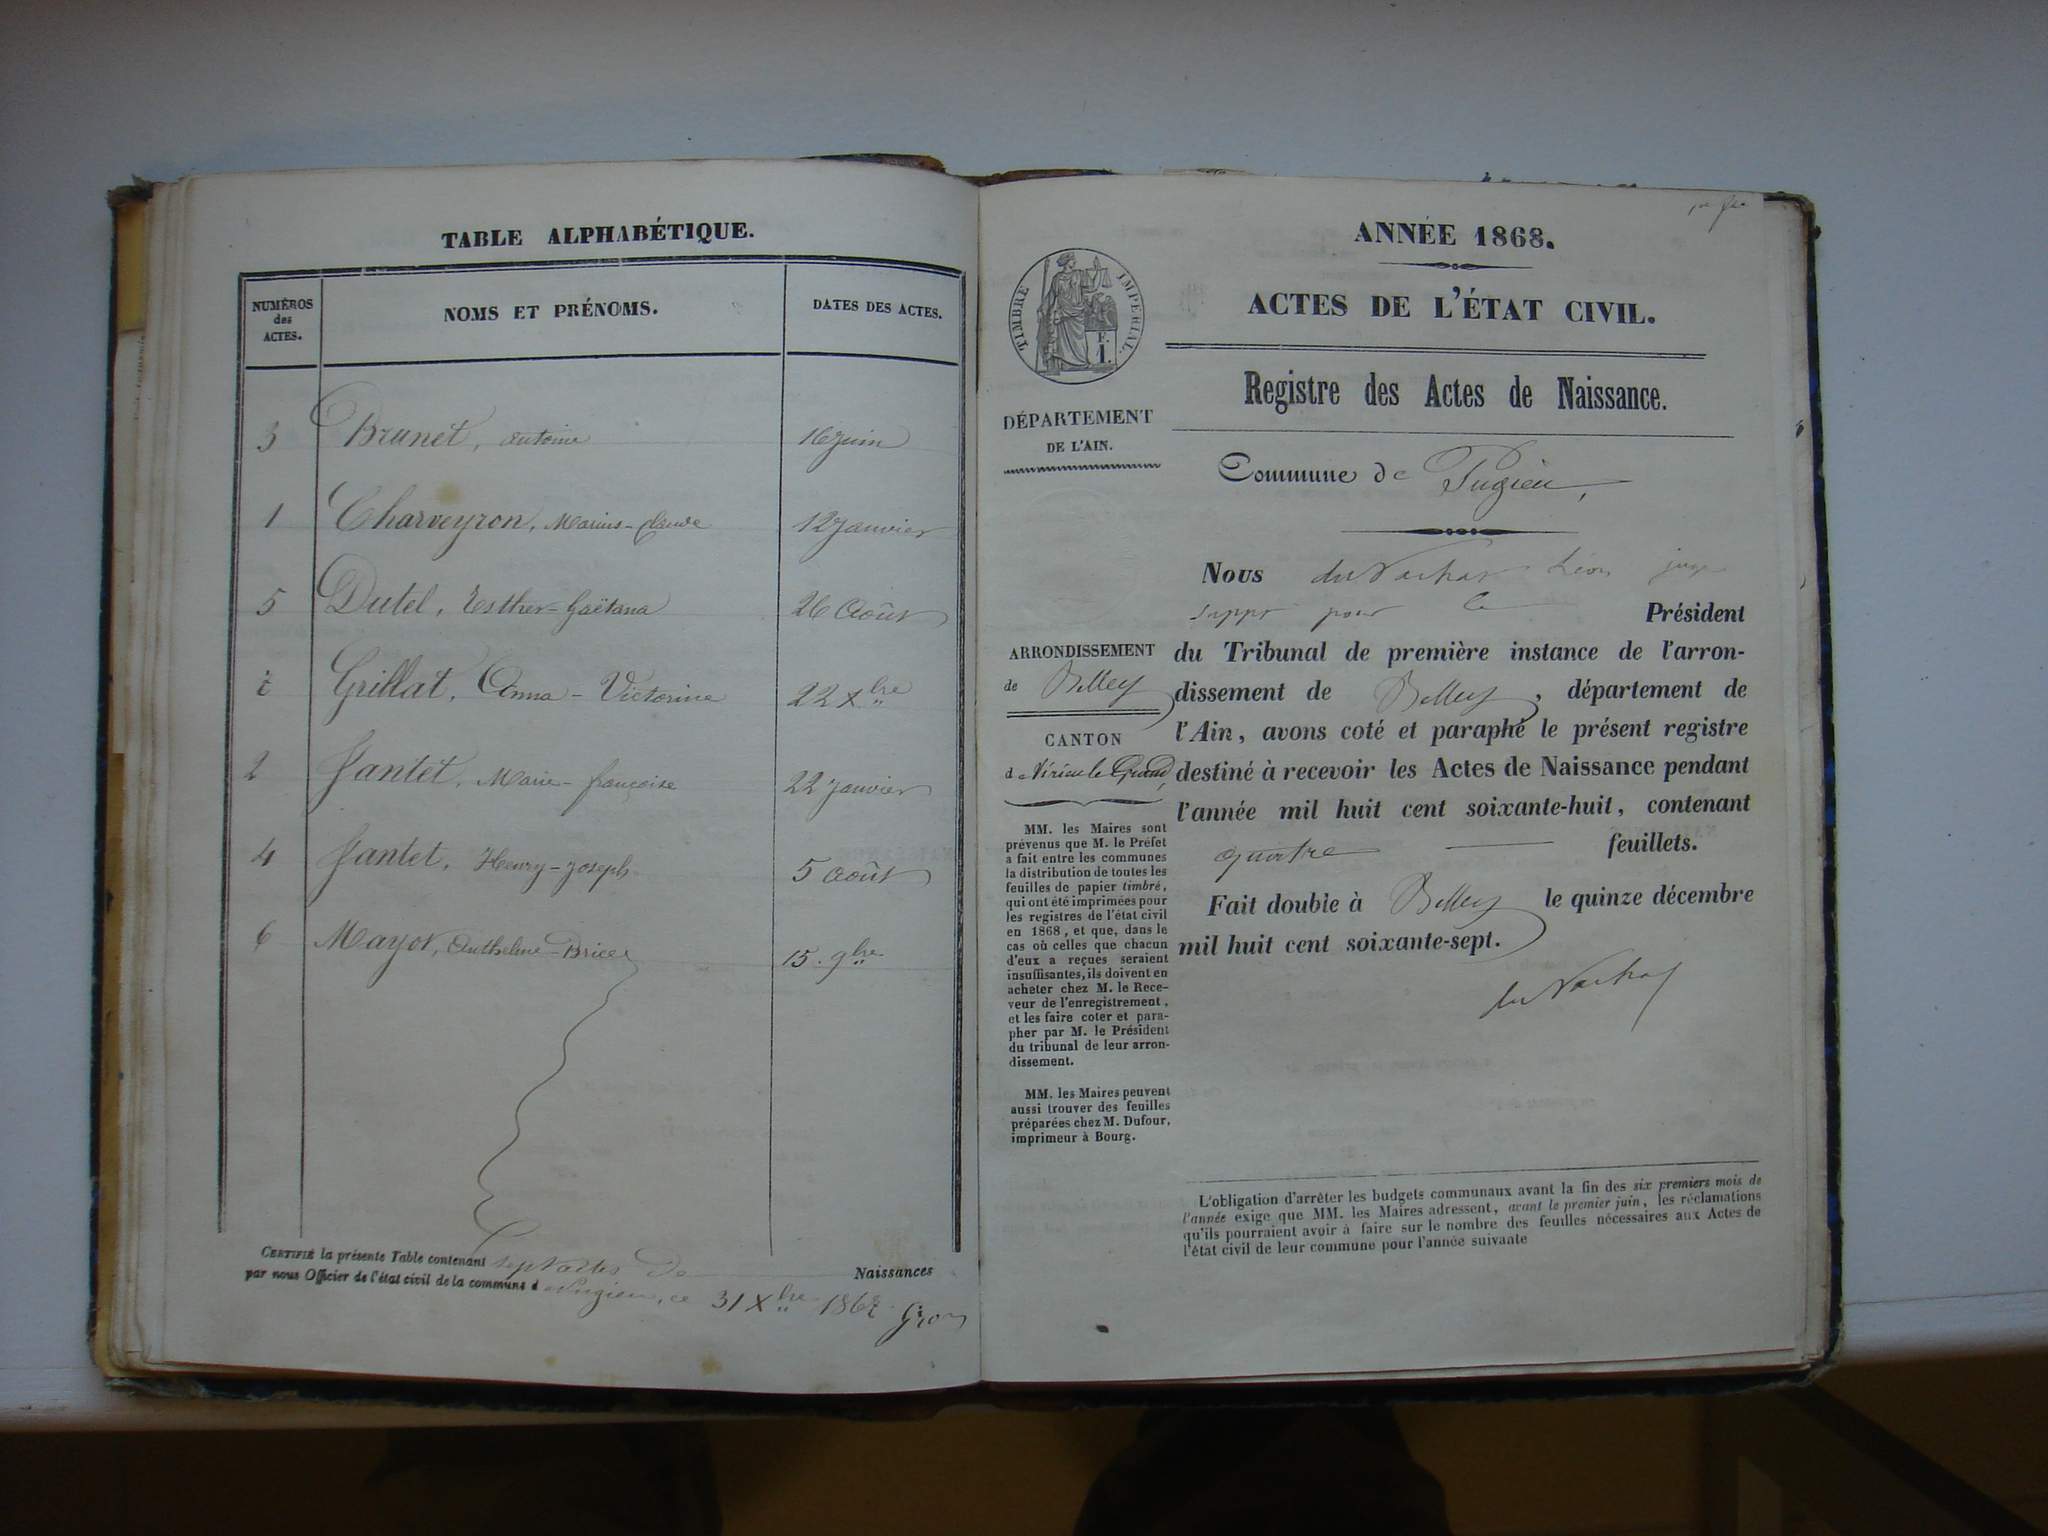 TABLE ALPHABÉTIQUE.
NUMÉROS
des
ACTES.
NOMS ET PRÉNOMS.
DATES DES ACTES.
3 Brunet, Antoine 16 Juin
1 Charveyron, Marius-Claude 12 Janvier
5 Dutel, Esther-Gaëtana 26 Août
Grillat, Anna-Victorine 22 Xbre
2 Jantet, Marie-françoise 22 Janvier
4 Jantet, Henry-Joseph 5 Août
6 Mayot, Anthelme-Brice 15 9bre
CERTIFIÉ la présente Table contenant sept actes de Naissances
par nous Officier de l'état civil de la commune d Pugieu, ce 31 Xbre 1867
ANNÉE 1868.
ACTES DE L'ÉTAT CIVIL.
TIMBRE IMPERIAL.
F.
1.
Registre des Actes de Naissance.
DÉPARTEMENT
DE L'AIN.
Commune de Pugieu,
Nous Léon juge
suppt pour le Président
du Tribunal de première instance de l'arron-
dissement de Belley, département de
l'Ain, avons coté et paraphé le présent registre
destiné à recevoir les Actes de Naissance pendant
l'année mil huit cent soixante-huit, contenant
quatre feuillets.
Fait double à Belley le quinze décembre
mil huit cent soixante-sept.
ARRONDISSEMENT
de Belley
CANTON
de Virieu le Grand,
MM. les Maires sont
prévenus que M. le Préfet
a fait entre les communes
la distribution de toutes les
feuilles de papier timbré,
qui ont été imprimées pour
les registres de l'état civil
en 1868, et que, dans le
cas où celles que chacun
d'eux a reçues seraient
insuffisantes, ils doivent en
acheter chez M. le Rece-
veur de l'enregistrement,
et les faire coter et para-
pher par M. le Président
du tribunal de leur arron-
dissement.
MM. les Maires peuvent
aussi trouver des feuilles
préparées chez M. Dufour,
imprimeur à Bourg.
L'obligation d'arrêter les budgets communaux avant la fin des six premiers mois de
l'année exige que MM. les Maires adressent, avant le premier juin, les réclamations
qu'ils pourraient avoir à faire sur le nombre des feuilles nécessaires aux Actes de
l'état civil de leur commune pour l'année suivante